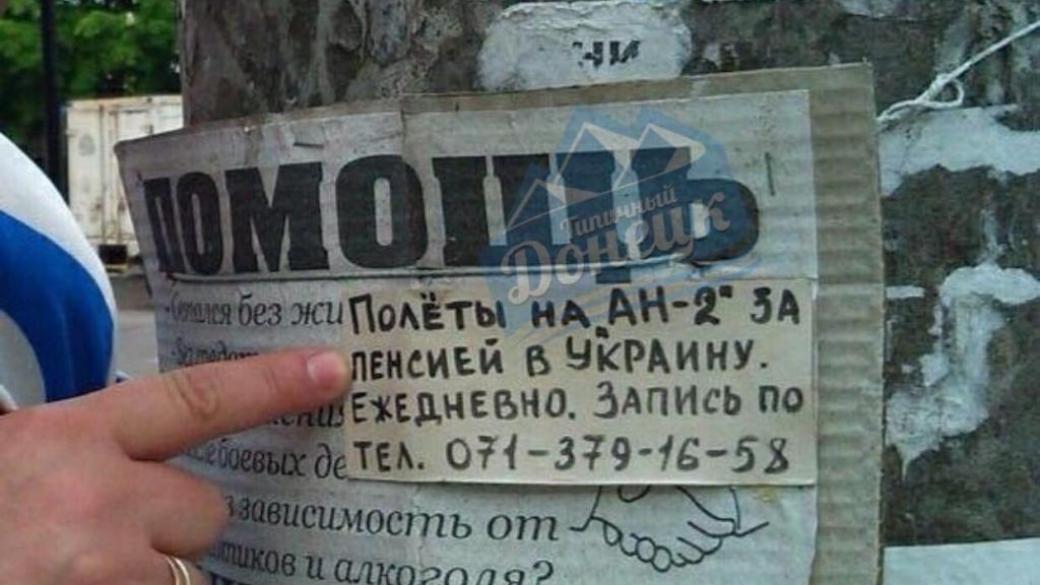 ни
ПОМОЩЬ
Типичный
Донецк
без жи
ПОЛЁТЫ НА „АН-2" ЗА
ПЕНСИЕЙ В УКРАИНУ.
ЕЖЕДНЕВНО. ЗАПИСЬ ПО
ТЕЛ. 071-379-16-58
боевых де
зависимость от
и алкоголя?